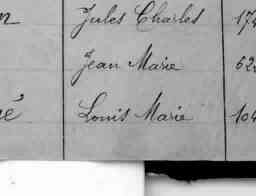 n Jules Charles 174
Jean Marie 62
é Louis Marie 104